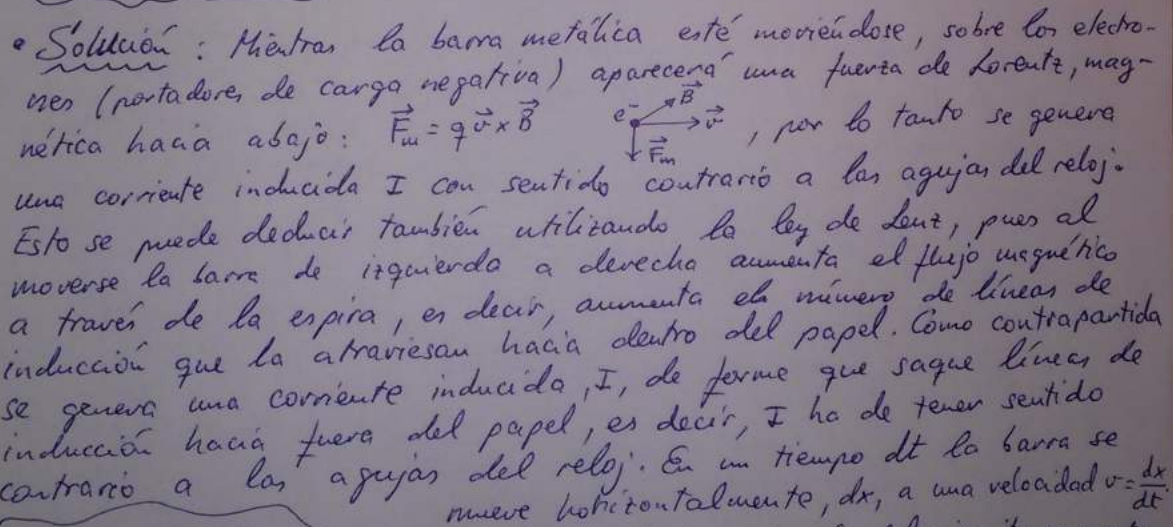 • Solución: Mientras la barra metálica esté moviéndose, sobre los electro-
nes (portadores de carga negativa) aparecerá una fuerza de Lorentz, mag-
nética hacia abajo: F⃗m = q v⃗ x B⃗ e⁻ B⃗ v⃗ F⃗m , por lo tanto se genera
una corriente inducida I con sentido contrario a las agujas del reloj.
Esto se puede deducir también utilizando la ley de Lenz, pues al
moverse la barra de izquierda a derecha aumenta el flujo magnético
a través de la espira, es decir, aumenta el número de líneas de
inducción que la atraviesan hacia dentro del papel. Como contrapartida
se genera una corriente inducida, I, de forma que saque líneas de
inducción hacia fuera del papel, es decir, I ha de tener sentido
contrario a las agujas del reloj. En un tiempo dt la barra se
mueve horizontalmente, dx, a una velocidad v = dx/dt.